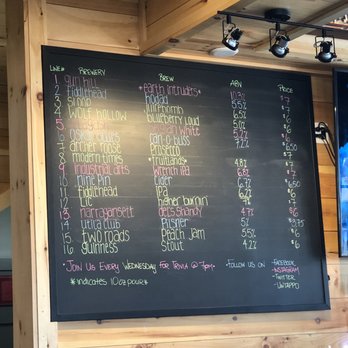 LINE# BREWERY BREW ABV PRICE
1 gun hill *earth intruders* 10.3% $7
2 fiddlehead hodad 5.5% $7
3 Singlo 6.5% $7
4 Wolf Hollow blueberry loud 5% $6
5 van white $6
6 Oskar Blues can-o-bliss 7.2% $6.50
7 archer roose prosecco $7
8 modern times *fruitlands* 4.8% $7
9 industrial arts wrench ipa 6.8% $7
10 Nine Pin cider 6.7% $6.50
11 fiddlehead ipa 6.2% $7
12 Lic higher burnin $7
13 narragansett del's shandy 4.7% $6
14 utica club Pilsner 5% $3.75
15 two roads Peach Jam 5% $6
16 Guinness Stout 4.2% $6
*Join Us Every Wednesday for Trivia @ 7pm*
*Follow us on -Facebook
-Instagram
-Twitter
-Untappd
*indicates 10oz pour*